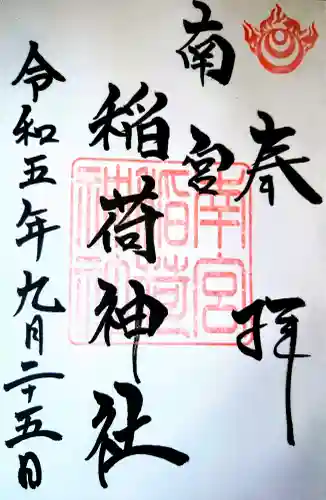 奉拝
南宮
稲荷神社
令和五年九月二十五日
南宮
稲荷
神社